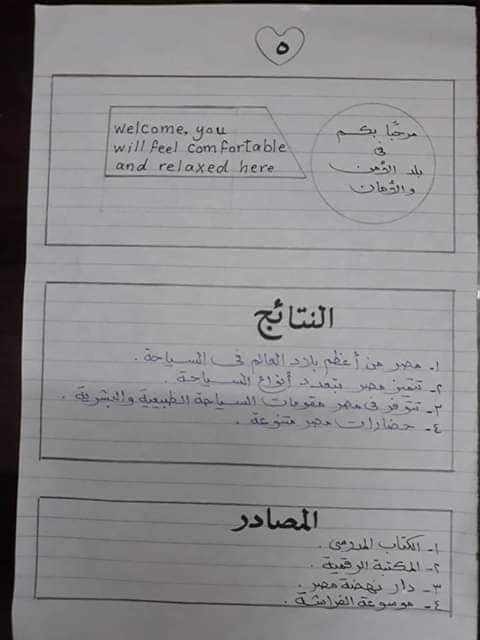 ٥
welcome, you
will feel comfortable
and relaxed here
مرحبًا بكم
فى
بلد الأمن
والأمان
النتائج
١- مصر من أعظم بلاد العالم فى السياحة .
٢- تتميز مصر بتعدد أنواع السياحة .
٣- تتوفر فى مصر مقومات السياحة الطبيعية والبشرية .
٤- حضارات مصر متنوعة .
المصادر
١- الكتاب المدرسى .
٢- المكتبة الرقمية .
٣- دار نهضة مصر .
٤- موسوعة الفراشة .